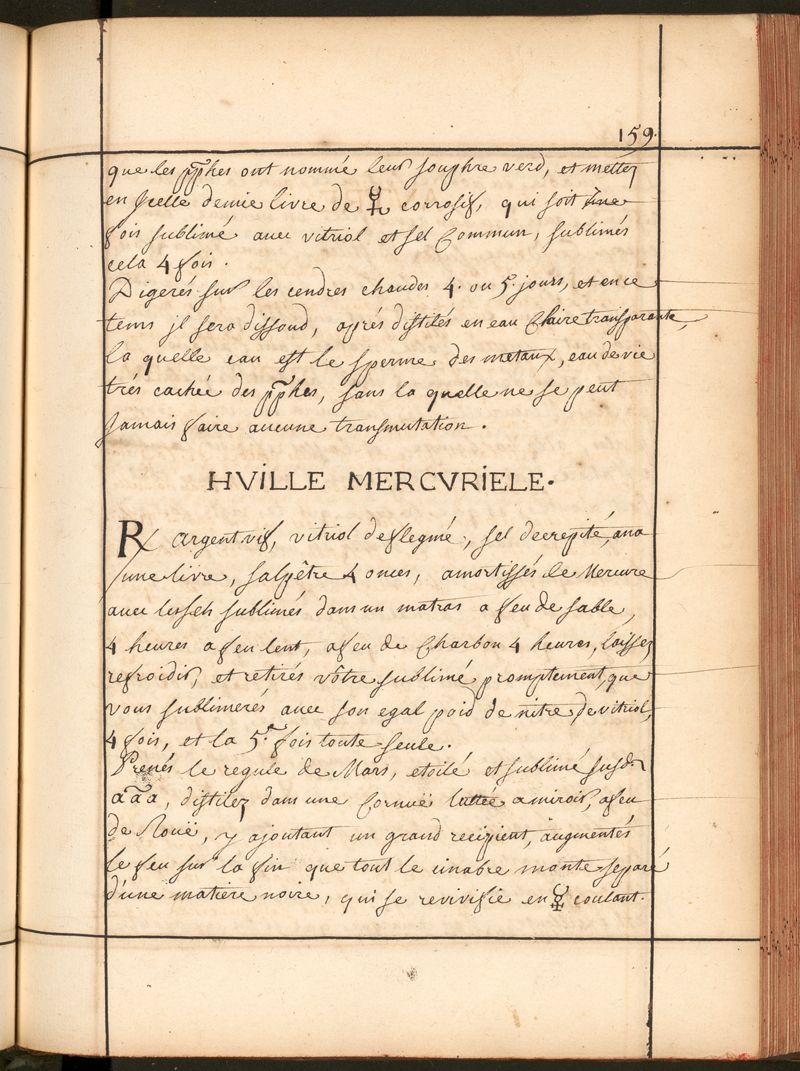 159.
que les pp̃hes ont nommé leur souphre verd, et mettez
en jcelle demie livre de ☿ corrosif, qui soit üne
fois sublimé auec vitriol et sel commun, sublimés
cela 4 fois.
Digerés sur les cendres chaudes 4. ou 5. jours, et en ce
tems jl sera dissoud, aprés distilés en eau Claire transparante,
la quelle eau est le sperme des metaux, eau de vie
trés cachée des pp̃hes, sans la quelle ne se peut
Jamais faire aucune transmutation.
HVILLE MERCVRIELE.
℞ argent vif, vitriol deflegmé, sel decrepité, ana
une livre, salpêtre 4 onces, amortissés le Mercure
auec les sels sublimés dans un matras a feu de sable,
4 heures a feu lent, a feu de Charbon 4 heures, laissez
refroidir, et retirés vôtre sublimé promptement, que
vous sublimerés auec son egal poid de nitre de vitriol,
4 fois, et la 5.e fois toute seule.
Prenés le regule de Mars, etoilé et sublimé susd.
aãa, distilez dans une Cornuë luttée a miroir, a feu
de Rouë, y ajoutant un grand recipient, augmentés
le feu sur la fin que tout le cinabre monte separé
d'une matiere noire, qui se revivifie en ☿ coulant.